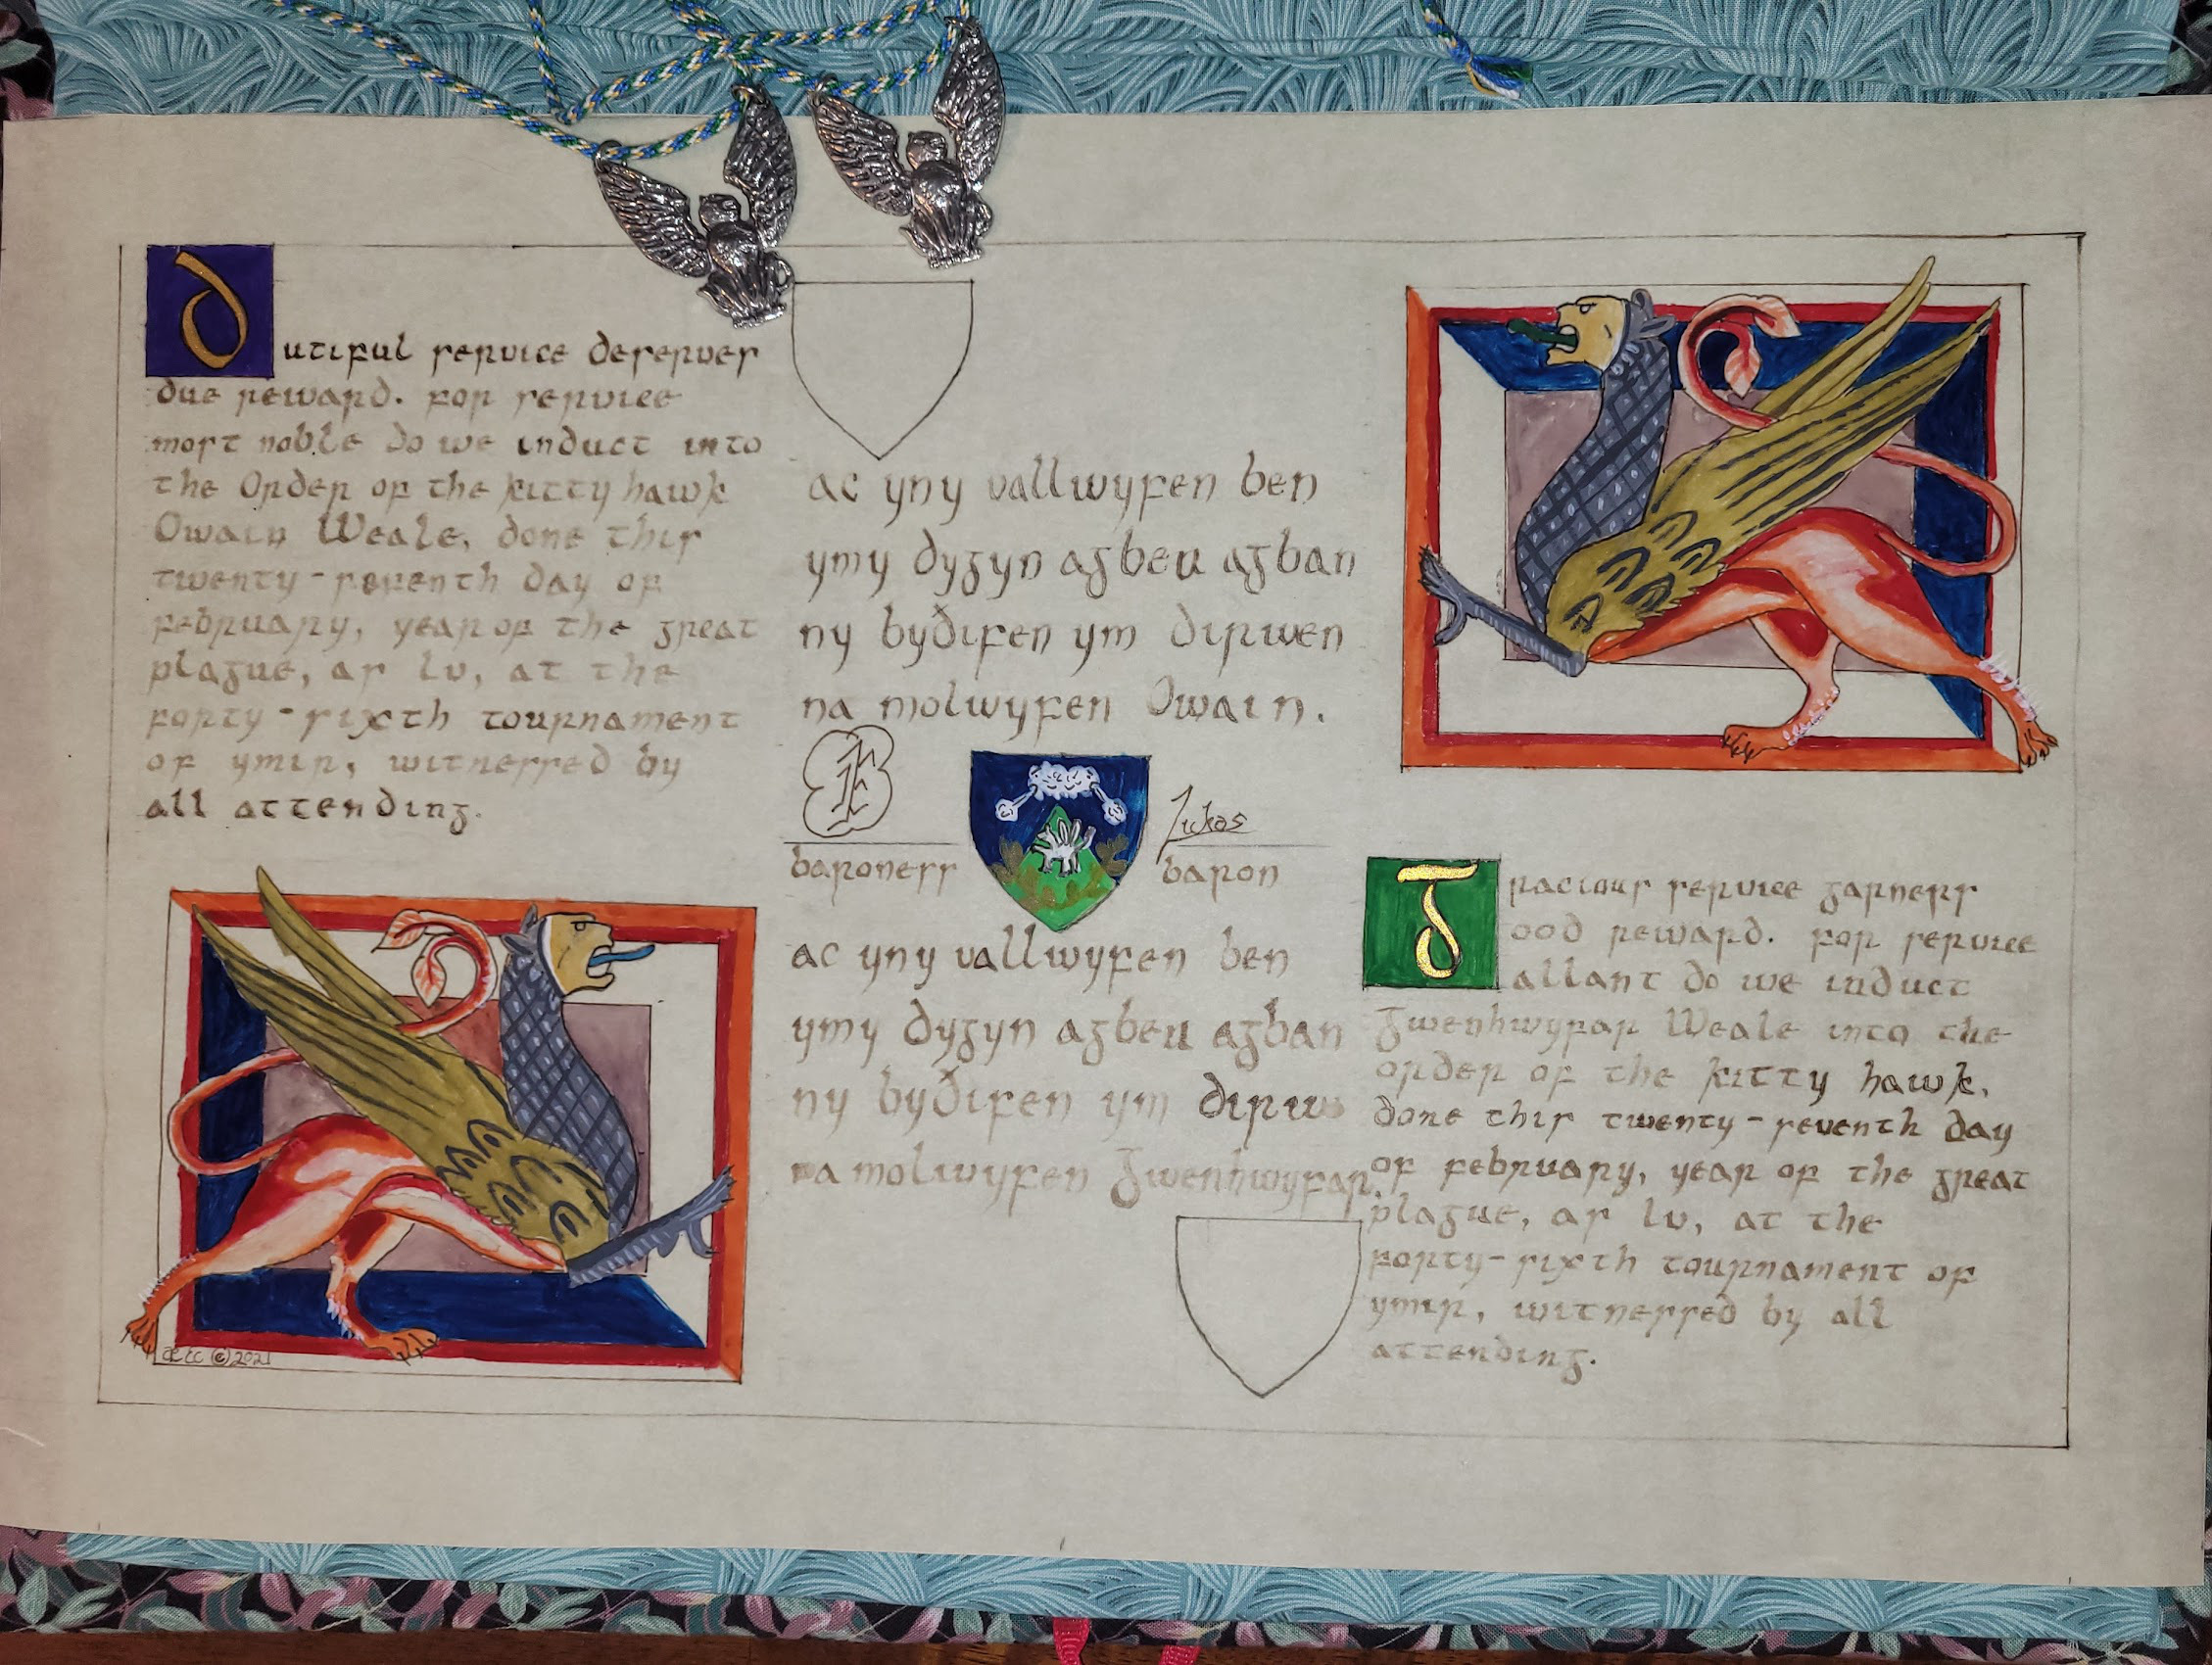 Dutiful service deserves
due reward. For service
most noble do we induct into
the Order of the kitty hawk
Owain Weale, done this
twenty-seventh day of
february, year of the great
plague, as lv, at the
forty-sixth tournament
of ymir, witnessed by
all attending.
ac yny vallwyfen ben
ymy dygyn agbeu agban
ny byðifen ym dirwen
na molwyfen Owain.
baroness
Lukas
baron
ac yny vallwyfen ben
ymy dygyn agbeu agban
ny byðifen ym dirw
na molwyfen Gwenhwyfar.
Gracious service garners
ood reward. For service
allant do we induct
Gwenhwyfar Weale into the
order of the kitty hawk,
done this twenty-seventh day
of february, year of the great
plague, as lv, at the
forty-sixth tournament of
ymir, witnessed by all
attending.
© 2021